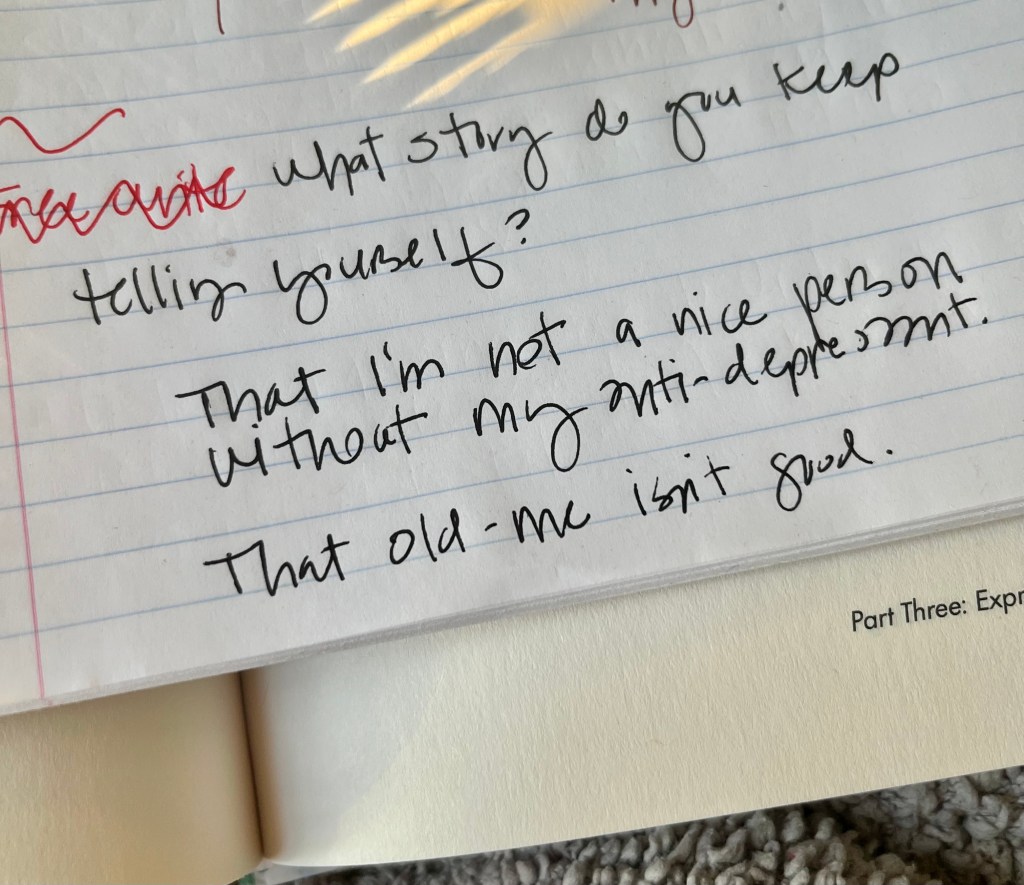 what story do you keep
telling yourself?
That I'm not a nice person
without my anti-depressant.
That old-me isn't good.
Part Three: Expr